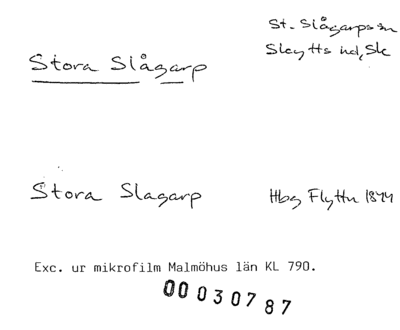 Stora Slågarp
St. Slågarps sn
Skytts hd, Sk
Stora Slagarp
Hbg Flyttn 1844
Exc. ur mikrofilm Malmöhus län KL 790.
00030787